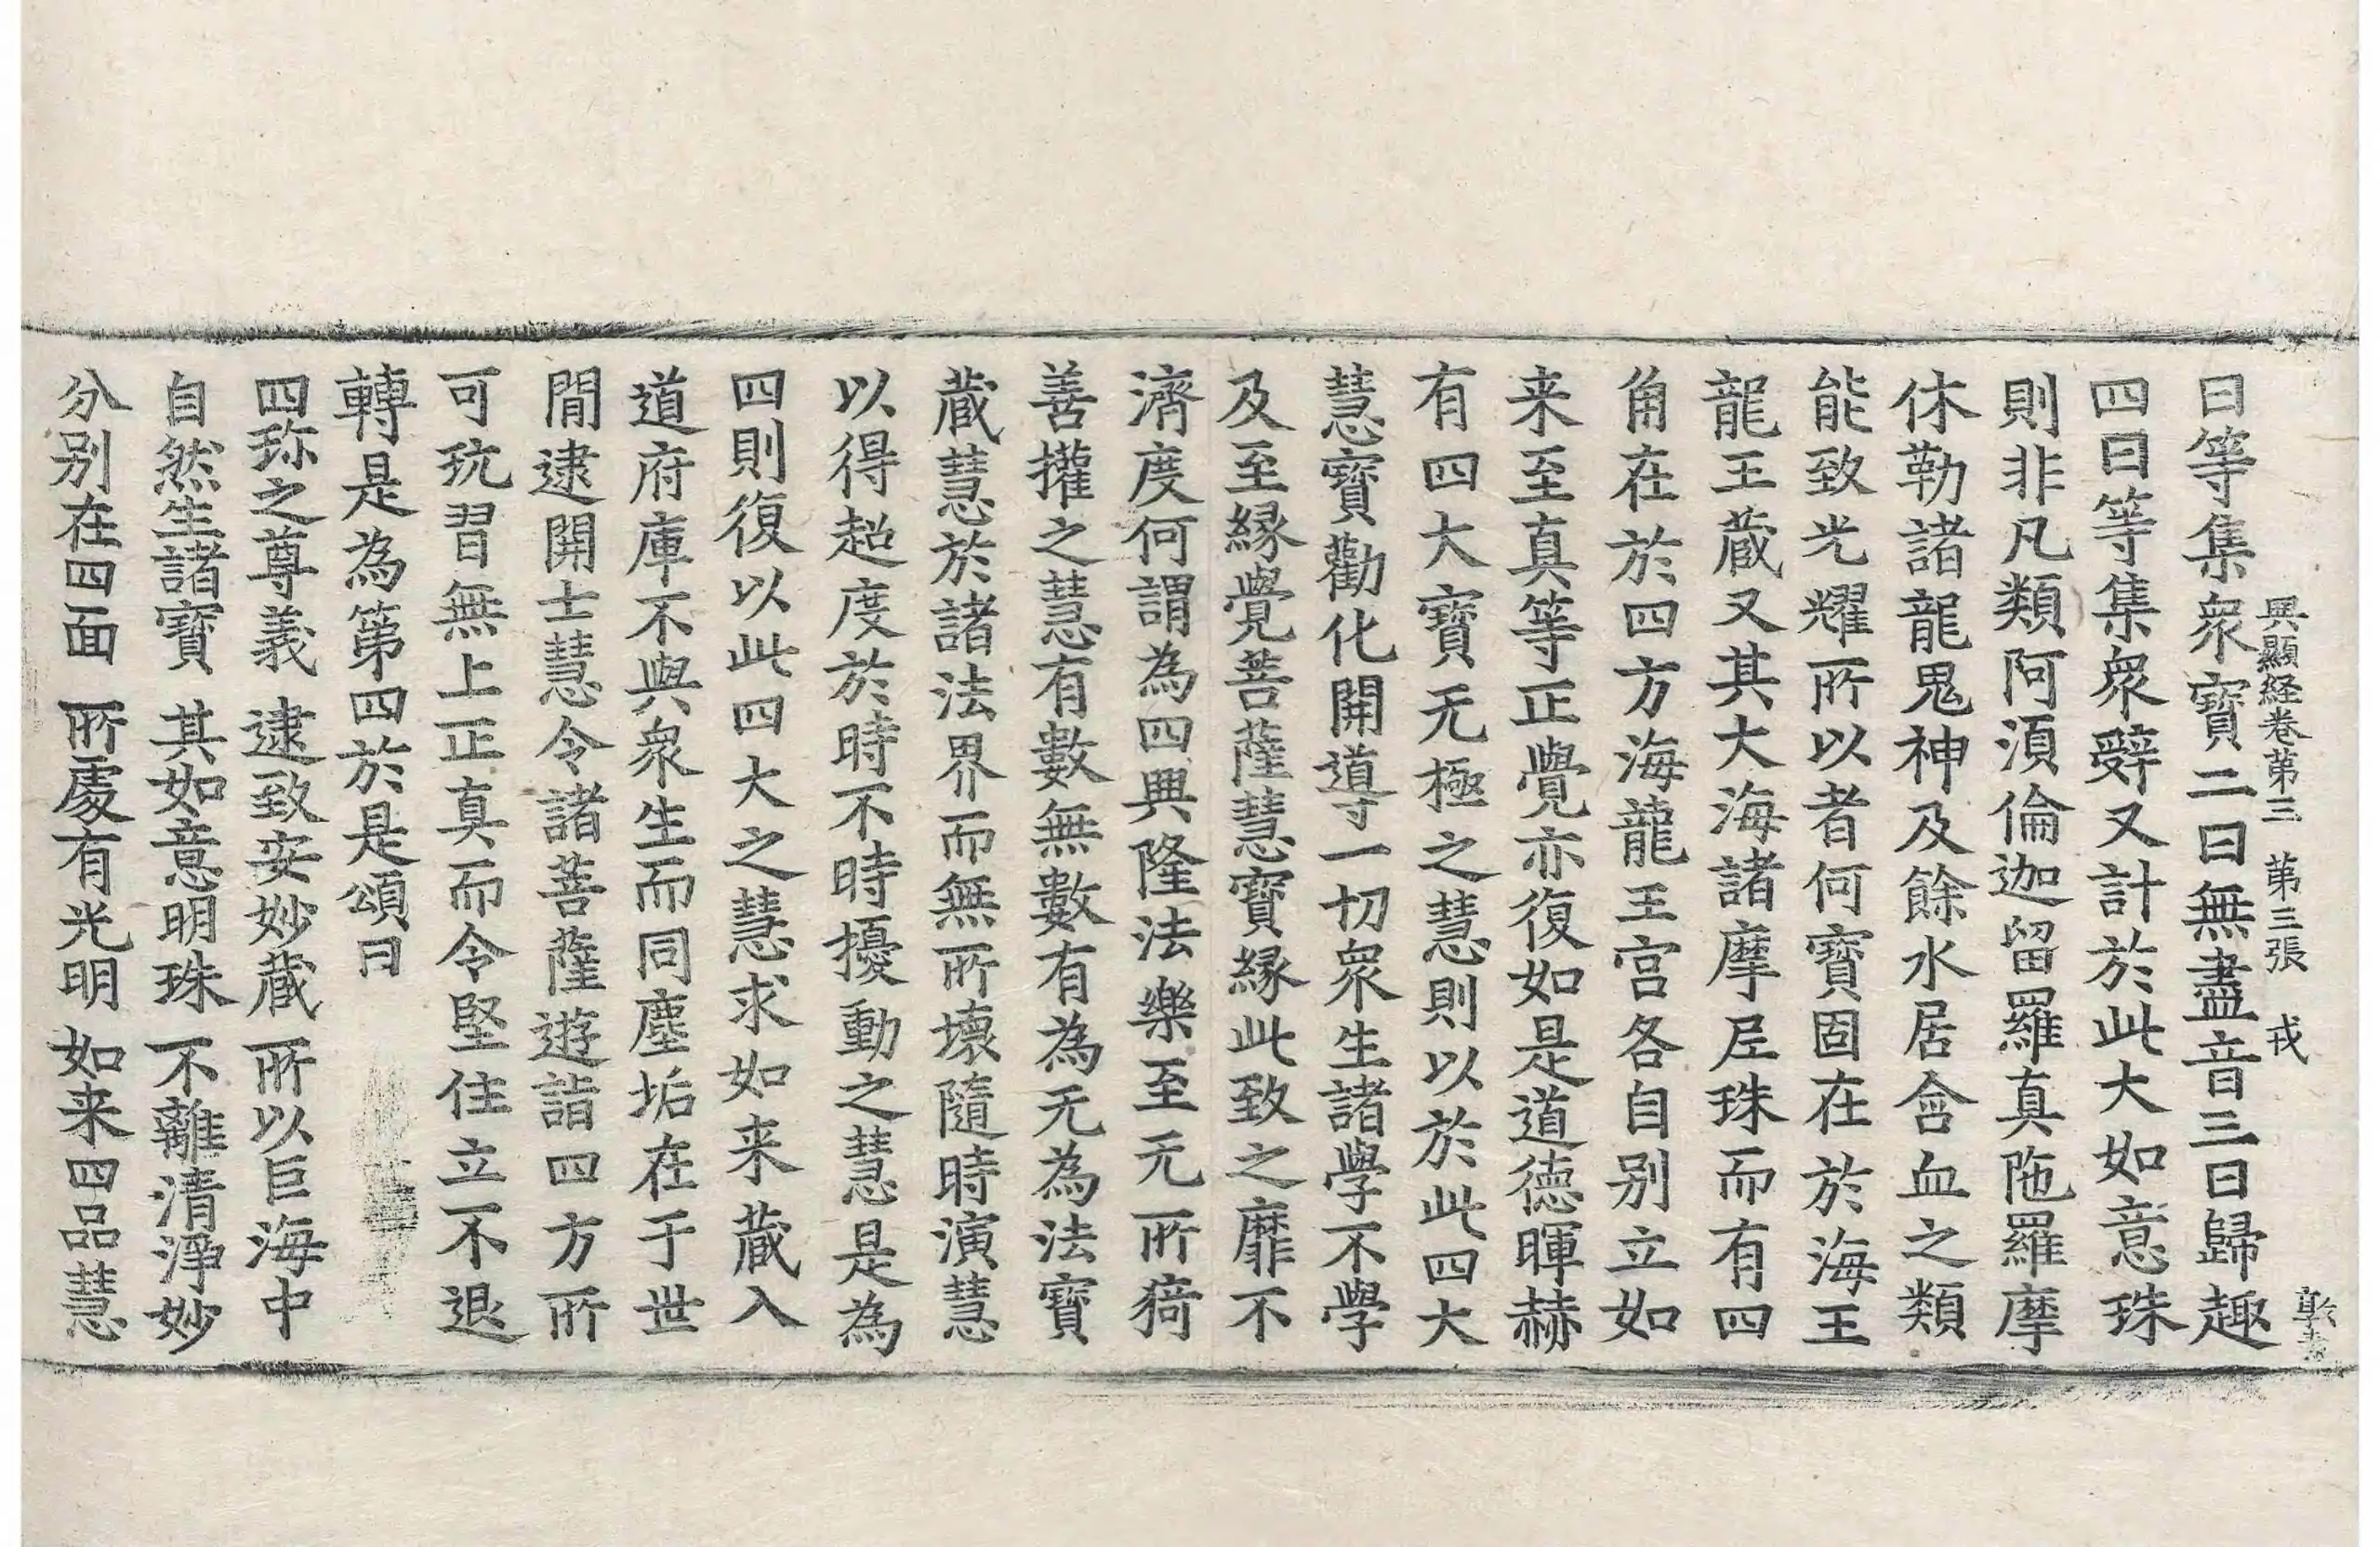 興顯経卷第三 第三張 戎
曰等集衆寶二曰無盡音三曰歸趣
四曰等集衆辭又計於此大如意珠
則非凡類阿須倫迦留羅真陁羅摩
休勒諸龍鬼神及餘水居含血之類
能致光耀所以者何寶固在於海王
龍王蔵又其大海諸摩尼珠而有四
角在於四方海龍王宫各自别立如
来至真等正覺亦復如是道德暉赫
有四大寶无極之慧則以於此四大
慧寶勸化開導一切衆生諸學不學
及至縁覺菩薩慧寶縁此致之靡不
濟度何謂為四興隆法樂至无所猗
善權之慧有數無數有為无為法寶
蔵慧於諸法界而無所壞隨時演慧
以得超度於時不時擾動之慧是為
四則復以此四大之慧求如来蔵入
道府庫不與衆生而同塵垢在于世
間逮開士慧令諸菩薩遊詣四方所
可玩習無上正真而令堅住立不退
轉是為第四於是頌曰
四珎之尊義 逮致安妙蔵 所以巨海中
自然生諸寶 其如意明珠 不離清淨妙
分别在四面 所處有光明 如来四品慧